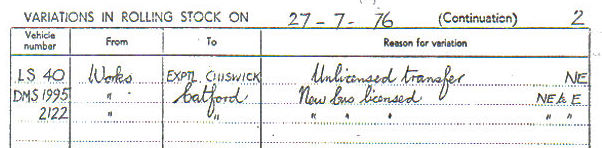 VARIATIONS IN ROLLING STOCK ON 27-7-76 (Continuation) 2
Vehicle number From To Reason for variation
LS 40 Works EXPTL. CHISWICK Unlicensed transfer NE
DMS 1995 " Catford New bus licensed NE to E
2122 " " " " " " "